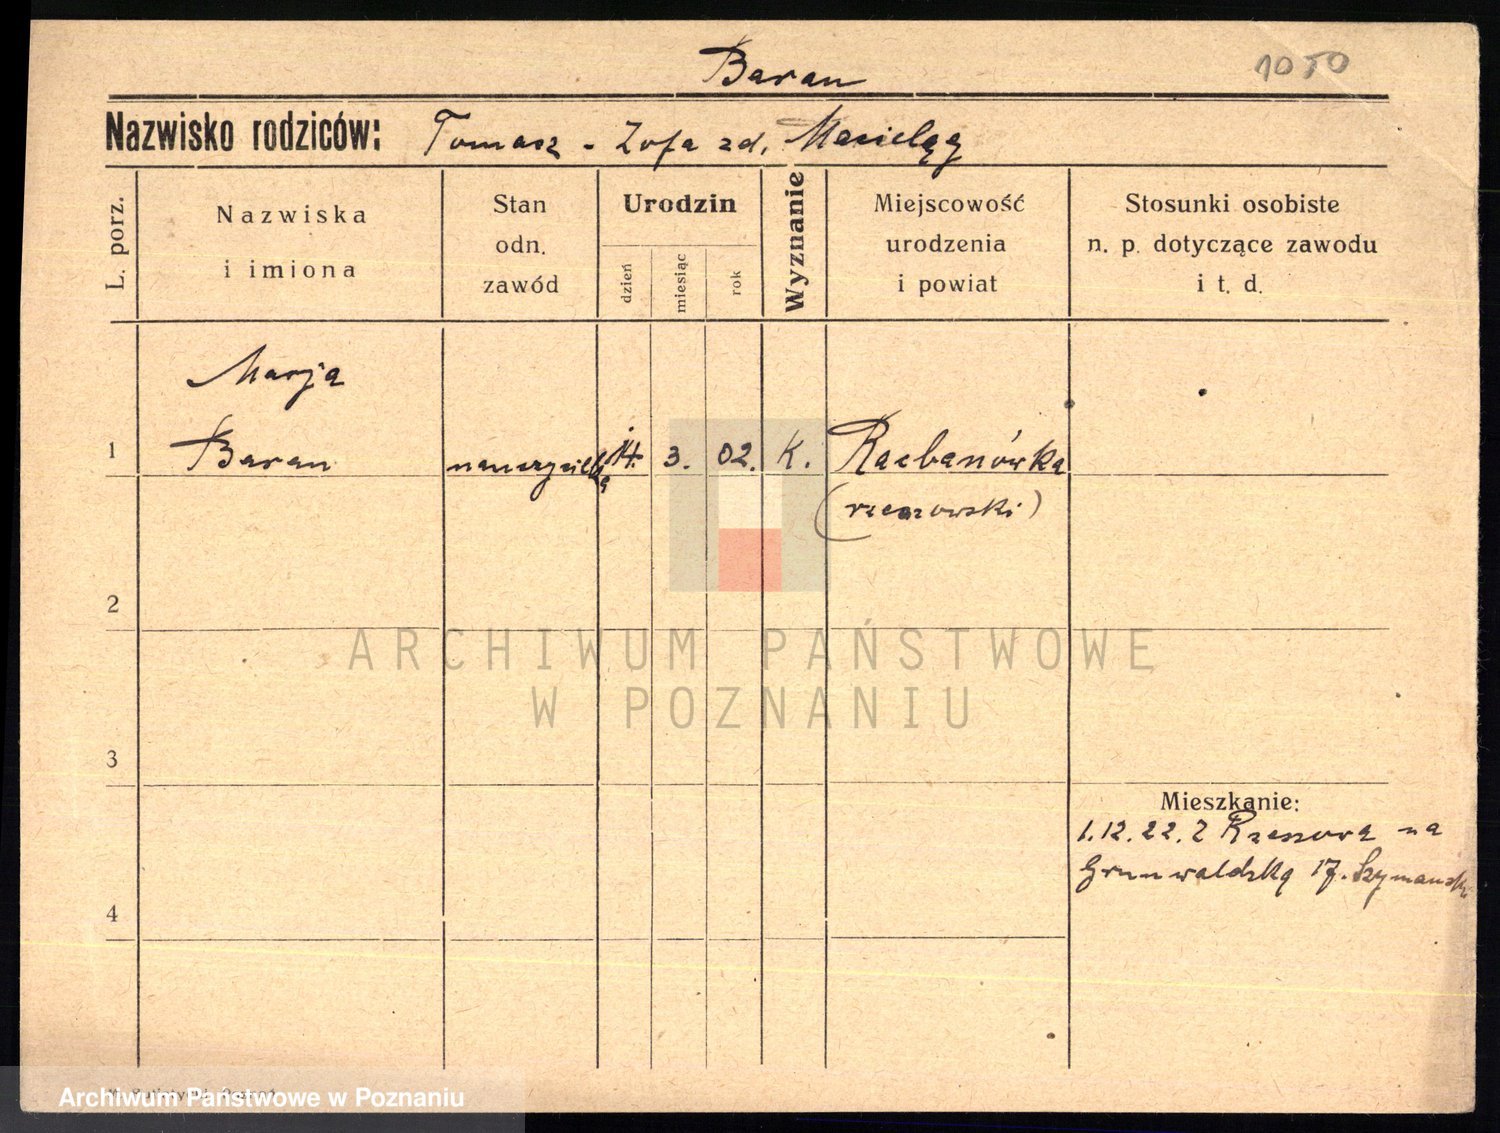 Baran
1050
Nazwisko rodziców: Tomasz - Zofa zd.
L. porz.
Nazwiska
i imiona
Stan
odn.
zawód
Urodzin
dzień
miesiąc
rok
Wyznanie
Miejscowość
urodzenia
i powiat
Stosunki osobiste
n. p. dotyczące zawodu
i t. d.
Marja
1 Baran nauczycielka 14. 3. 02. K. Racbanówka
(rzeszowski)
2
ARCHIWUM PAŃSTWOWE
W POZNANIU
3
Mieszkanie:
1.12.22. Z Rzeszowa na
Grunwaldzką 17. Szymański
4
Archiwum Państwowe w Poznaniu